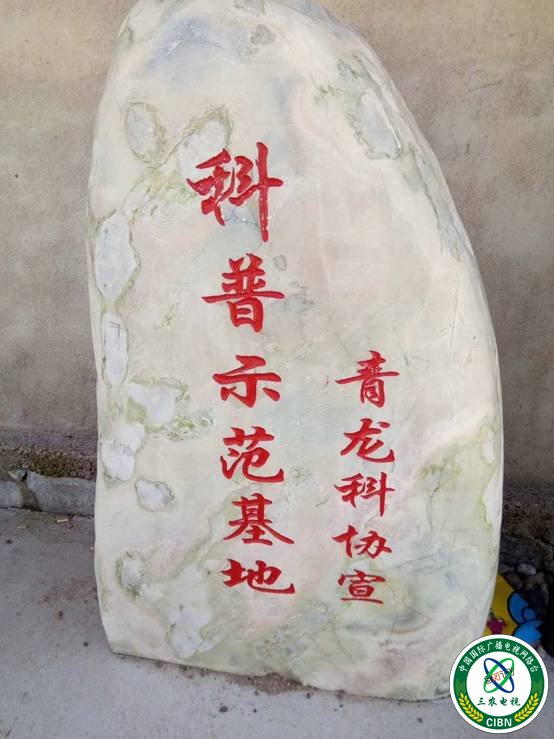 科普示范基地
青龙科协宣
中国国际广播电视网络台
三农电视
CIBN